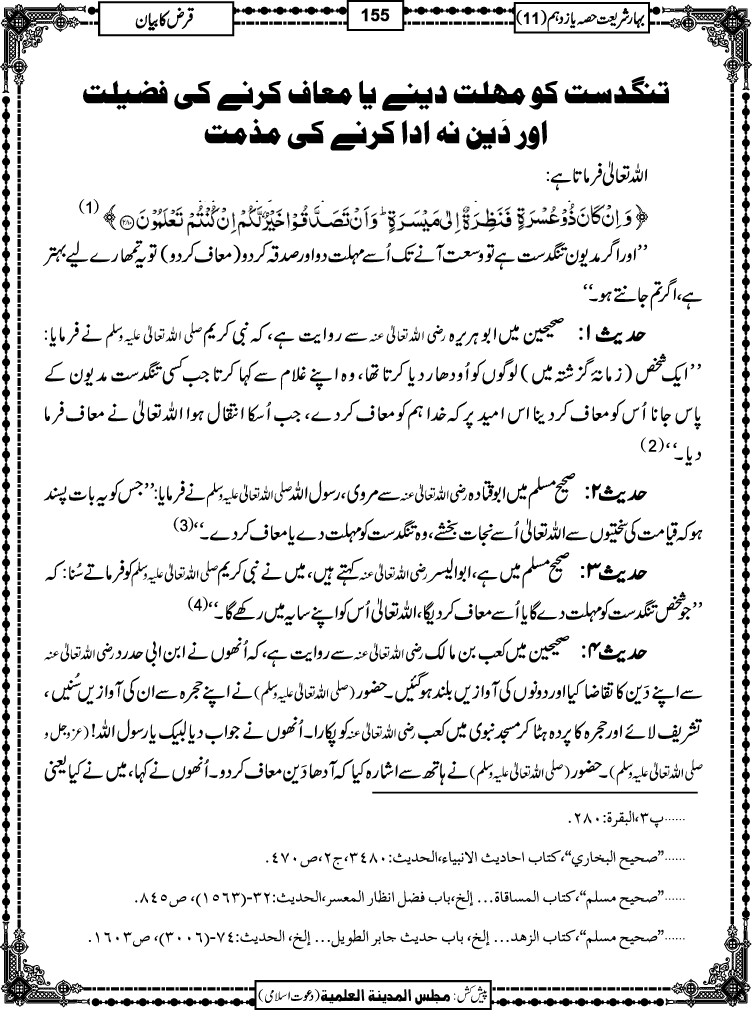 بہارِ شریعت حصہ یازدہم (11)
155
قرض کا بیان
تنگدست کو مہلت دینے یا معاف کرنے کی فضیلت
اور دَین نہ ادا کرنے کی مذمت
اللہ تعالیٰ فرماتا ہے:
﴿ وَ اِنْ كَانَ ذُوْ عُسْرَةٍ فَنَظِرَةٌ اِلٰى مَیْسَرَةٍؕ وَ اَنْ تَصَدَّقُوْا خَیْرٌ لَّكُمْ اِنْ كُنْتُمْ تَعْلَمُوْنَ ۲۸۰ ﴾ (1)
’’اور اگر مدیون تنگدست ہے تو وسعت آنے تک اُسے مہلت دو اور صدقہ کردو (معاف کردو) تو یہ تمھارے لیے بہتر
ہے، اگر تم جانتے ہو۔‘‘
حدیث ۱: صحیحین میں ابو ہریرہ رضی اللہ تعالیٰ عنہ سے روایت ہے، کہ نبی کریم صلی اللہ تعالیٰ علیہ وسلم نے فرمایا:
’’ایک شخص (زمانۂ گزشتہ میں) لوگوں کو اُودھار دیا کرتا تھا، وہ اپنے غلام سے کہا کرتا جب کسی تنگدست مدیون کے
پاس جانا اُس کو معاف کردینا اس امید پر کہ خدا ہم کو معاف کردے، جب اُسکا انتقال ہوا اللہ تعالیٰ نے معاف فرما
دیا۔‘‘(2)
حدیث ۲: صحیح مسلم میں ابوقتادہ رضی اللہ تعالیٰ عنہ سے مروی، رسول اللہ صلی اللہ تعالیٰ علیہ وسلم نے فرمایا: ’’جس کو یہ بات پسند
ہو کہ قیامت کی سختیوں سے اللہ تعالیٰ اُسے نجات بخشے، وہ تنگدست کو مہلت دے یا معاف کردے۔‘‘(3)
حدیث ۳: صحیح مسلم میں ہے، ابوالیسر رضی اللہ تعالیٰ عنہ کہتے ہیں، میں نے نبی کریم صلی اللہ تعالیٰ علیہ وسلم کو فرماتے سُنا: کہ
’’جو شخص تنگدست کو مہلت دے گا یا اُسے معاف کردیگا، اللہ تعالیٰ اُس کو اپنے سایہ میں رکھے گا۔‘‘(4)
حدیث ۴: صحیحین میں کعب بن مالک رضی اللہ تعالیٰ عنہ سے روایت ہے، کہ اُنھوں نے ابن ابی حدرد رضی اللہ تعالیٰ عنہ
سے اپنے دَین کا تقاضا کیا اور دونوں کی آوازیں بلند ہوگئیں۔ حضور (صلی اللہ تعالیٰ علیہ وسلم) نے اپنے حجرہ سے ان کی آوازیں سُنیں،
تشریف لائے اور حجرہ کا پردہ ہٹا کر مسجد نبوی میں کعب رضی اللہ تعالیٰ عنہ کو پکارا۔ اُنھوں نے جواب دیا لبیک یا رسول اللہ! (عزوجل و
صلی اللہ تعالیٰ علیہ وسلم)۔ حضور (صلی اللہ تعالیٰ علیہ وسلم) نے ہاتھ سے اشارہ کیا کہ آدھا دَین معاف کردو۔ اُنھوں نے کہا، میں نے کیا یعنی
......پ٣،البقرة:٢٨٠.
......”صحیح البخاري“،کتاب احادیث الانبیاء،الحدیث:٣٤٨٠،ج٢،ص٤٧٠.
......”صحیح مسلم“،کتاب المساقاة... إلخ،باب فضل انظار المعسر،الحدیث:٣٢-(١٥٦٣)، ص٨٤٥.
......”صحیح مسلم“،کتاب الزهد... إلخ، باب حدیث جابر الطویل... إلخ، الحدیث:٧٤-(٣٠٠٦)، ص١٦٠٣.
پیش کش: مجلس المدینة العلمیة (دعوتِ اسلامی)